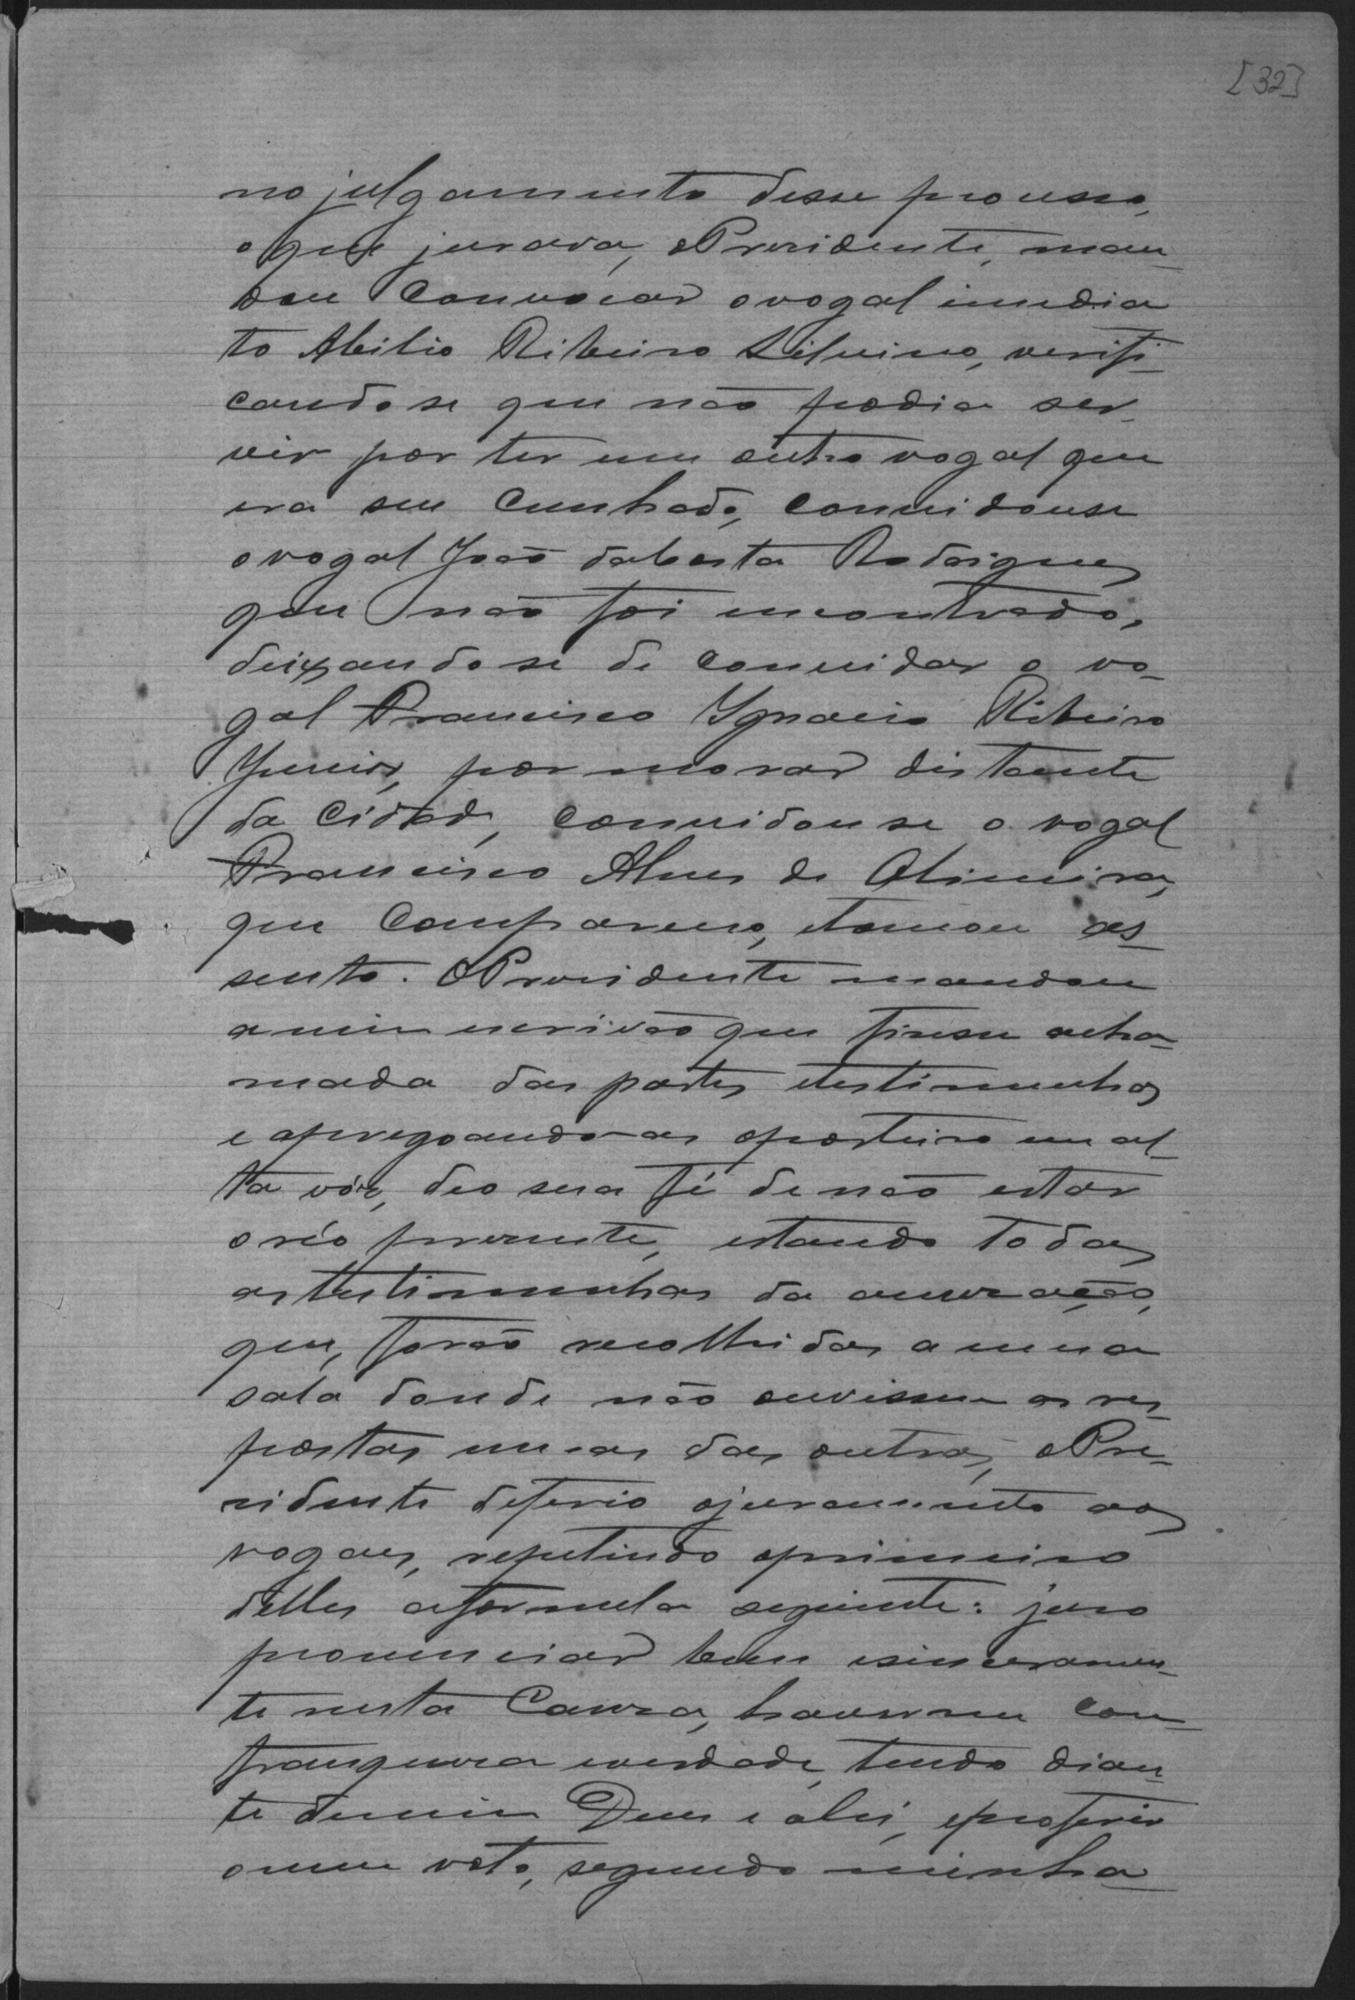 [32]
no julgamento desse processo,
o que jurava, o Presidente, man-
dou convocar o vogal immedia
to Abilio Ribeiro Silvino, verifi-
cando se que não podia ser-
vir por ter um outro vogal que
era seu cunhado, convidouse
o vogal João da Costa Rodrigues
que não foi encontrado,
deixando se de convidar o vo-
gal Francisco Ygnacio Ribeiro
Yunior, por morar distante
da Cidade, convidou se o vogal
Francisco Alves de Oliveira,
que compareceo, e tomou as-
sento. O Presidente mandou
a mim escrivão que fizesse acha-
mada das partes e testimunhas
e apregoando-as o porteiro em al-
ta vóz, deo sua fé de não estar
o réo presente, estando todas
as testimunhas da accuzação,
que, forão recolhidas a uma
sala donde não ouvissem as res-
postas umas das outras, o Pre-
zidente deferio o juramento aos
vogaes, repetindo o primeiro
delles a formula seguinte: juro
pronunciar bem e sinceramen-
te nesta Cauza, haverme com
franqueza e verdade, tendo dian-
te de mim Deus e a lei, e proferir
o meu voto, segundo minha